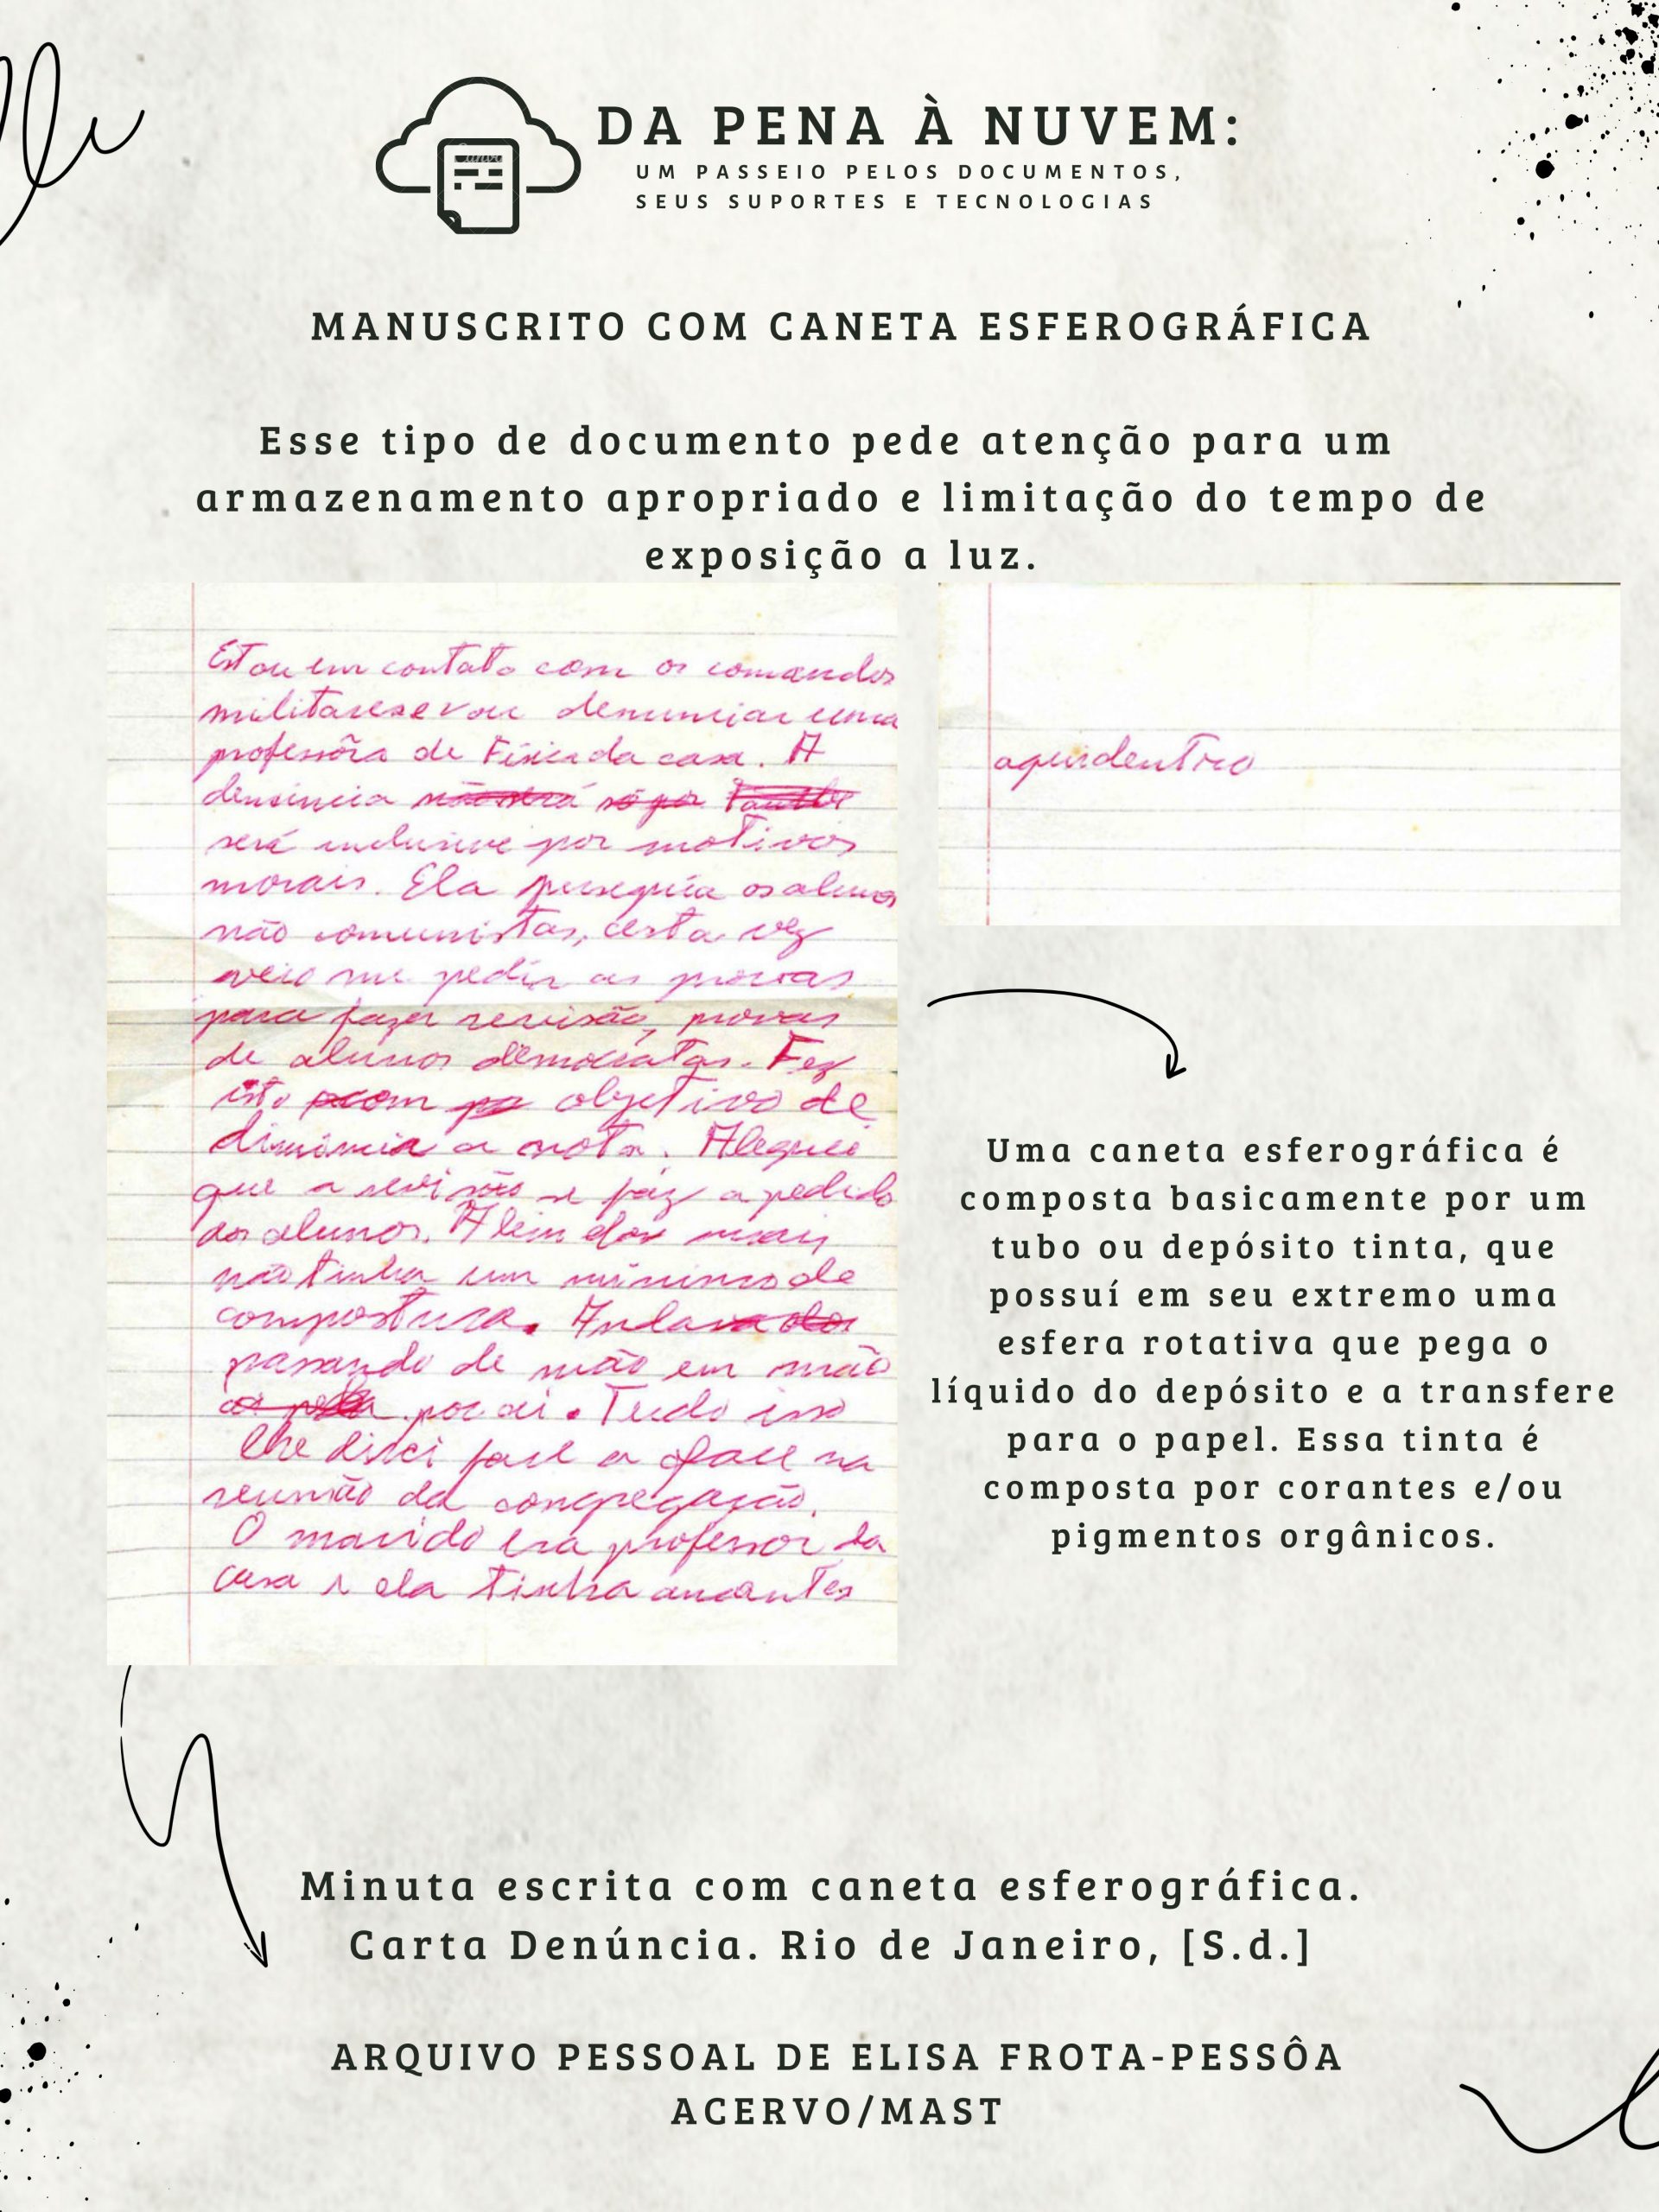 DA PENA À NUVEM:
UM PASSEIO PELOS DOCUMENTOS,
SEUS SUPORTES E TECNOLOGIAS
MANUSCRITO COM CANETA ESFEROGRÁFICA
Esse tipo de documento pede atenção para um
armazenamento apropriado e limitação do tempo de
exposição a luz.
Estou em contato com os comandos
militares e vou denunciar uma
professôra de Física da casa. A
denúncia não será só por
será inclusive por motivos
morais. Ela perseguia os alunos
não comunistas, certa vez
veio me pedir as provas
para fazer revisão, provas
de alunos democratas. Fez
isto com objetivo de
diminuir a nota. Aleguei
que a revisão se faz a pedido
dos alunos. Além do mais
não tinha um mínimo de
compostura. Andava
passando de mão em mão
por aí. Tudo isso
lhe disse face a face na
reunião da congregação.
O marido era professor da
casa e ela tinha amantes
aqui dentro
Uma caneta esferográfica é
composta basicamente por um
tubo ou depósito tinta, que
possuí em seu extremo uma
esfera rotativa que pega o
líquido do depósito e a transfere
para o papel. Essa tinta é
composta por corantes e/ou
pigmentos orgânicos.
Minuta escrita com caneta esferográfica.
Carta Denúncia. Rio de Janeiro, [S.d.]
ARQUIVO PESSOAL DE ELISA FROTA-PESSÔA
ACERVO/MAST